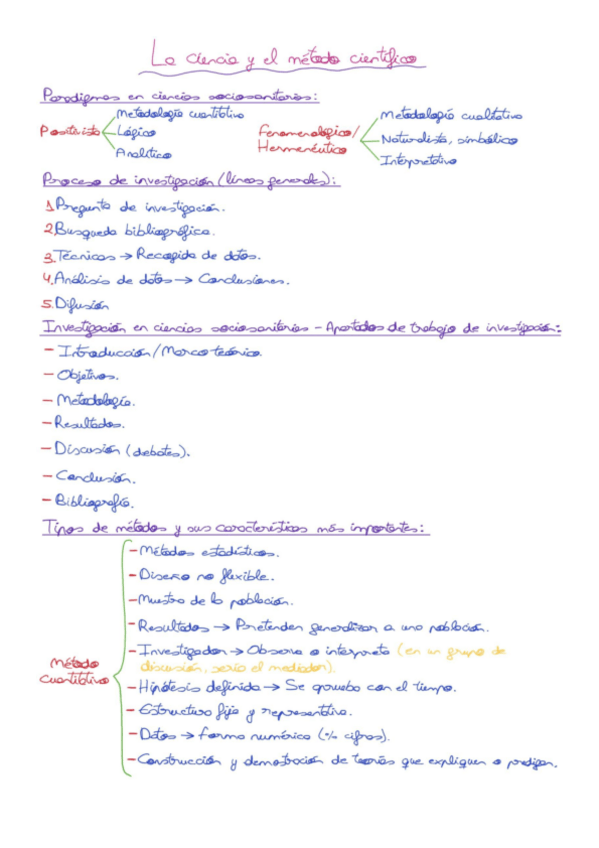 La ciencia y el método científico
Paradigmas en ciencias sociosanitarias:
Positivista
Metodología cuantitativa
Lógica
Analítica
Fenomenológico/
Hermenéutico
Metodología cualitativa
Naturalista, simbólica
Interpretativa
Proceso de investigación (líneas generales):
1. Pregunta de investigación.
2. Busqueda bibliográfica.
3. Técnicas → Recogida de datos.
4. Análisis de datos → Conclusiones.
5. Difusión
Investigación en ciencias sociosanitarias - Apartados de trabajo de investigación:
- Introducción/Marco teórico.
- Objetivos.
- Metodología.
- Resultados.
- Discusión (debates).
- Conclusión.
- Bibliografía.
Tipos de métodos y sus características más importantes:
Método
Cuantitativo
- Métodos estadísticos.
- Diseño no flexible.
- Muestra de la población.
- Resultados → Pretenden generalizar a una población.
- Investigador → Observa o interpreta (en un grupo de
discusión, sería el mediador).
- Hipótesis definida → Se aprueba con el tiempo.
- Estructura fija y representativa.
- Datos → Forma numérica (% cifras).
- Construcción y demostración de teorías que expliquen o predigan.